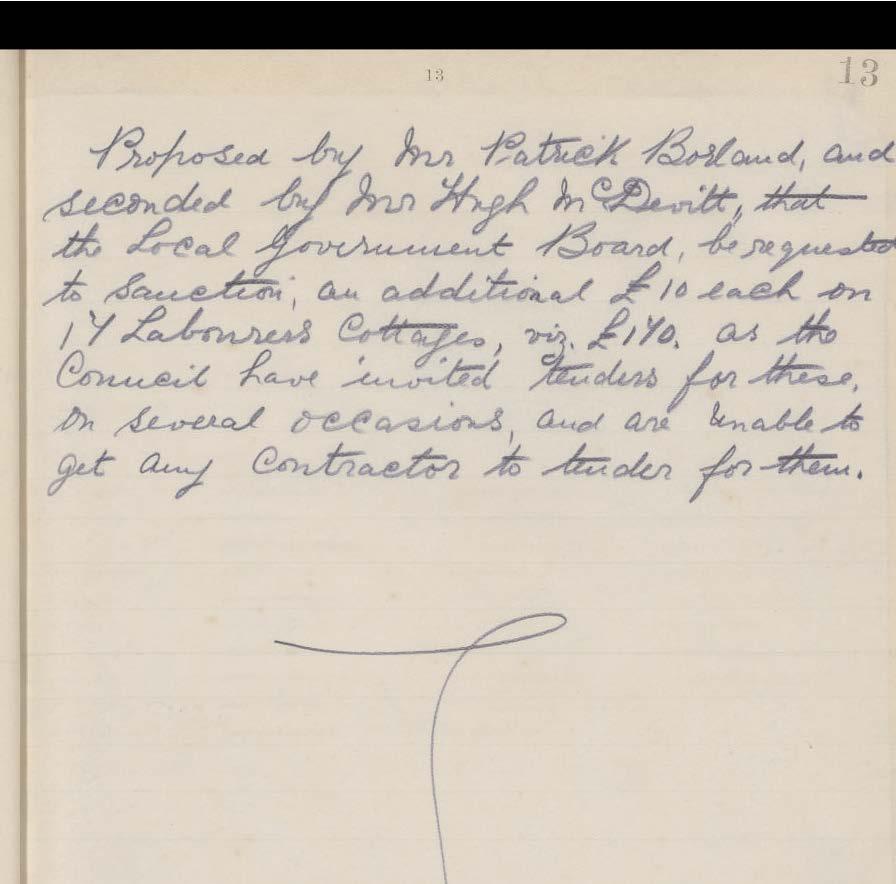 13
13
Proposed by Mr Patrick Borland, and
seconded by Mr Hugh McDevitt, that
the Local Government Board, be requested
to sanction, an additional £10 each on
17 Labourers Cottages, viz. £170. as the
Council have invited tenders for these,
on several occasions, and are unable to
get any Contractor to tender for them.